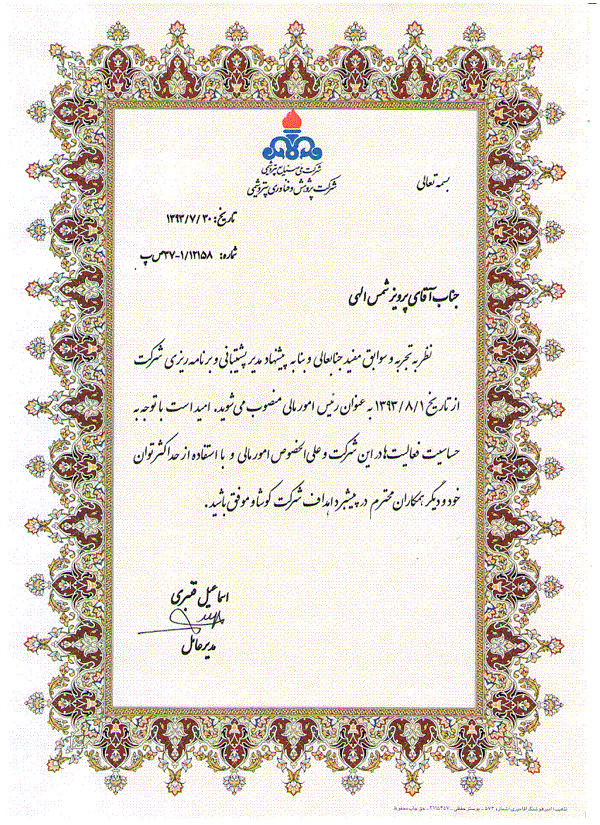 بسمه تعالی
شرکت ملی صنایع پتروشیمی
شرکت پژوهش و فناوری پتروشیمی
تاریخ: ۱۳۹۳/۷/۳۰
شماره: ۱/۱۲۱۵۸-۲۷ص پ
جناب آقای پرویز شمس الهی
نظر به تجربه و سوابق مفید جنابعالی و بنا به پیشنهاد مدیر پشتیبانی و برنامه ریزی شرکت
از تاریخ ۱۳۹۳/۸/۱ به عنوان رئیس امور مالی منصوب می شوید. امید است با توجه به
حساسیت فعالیت ها در این شرکت و علی الخصوص امور مالی و با استفاده از حداکثر توان
خود و دیگر همکاران محترم در پیشبرد اهداف شرکت کوشا و موفق باشید.
اسماعیل قنبری
مدیرعامل